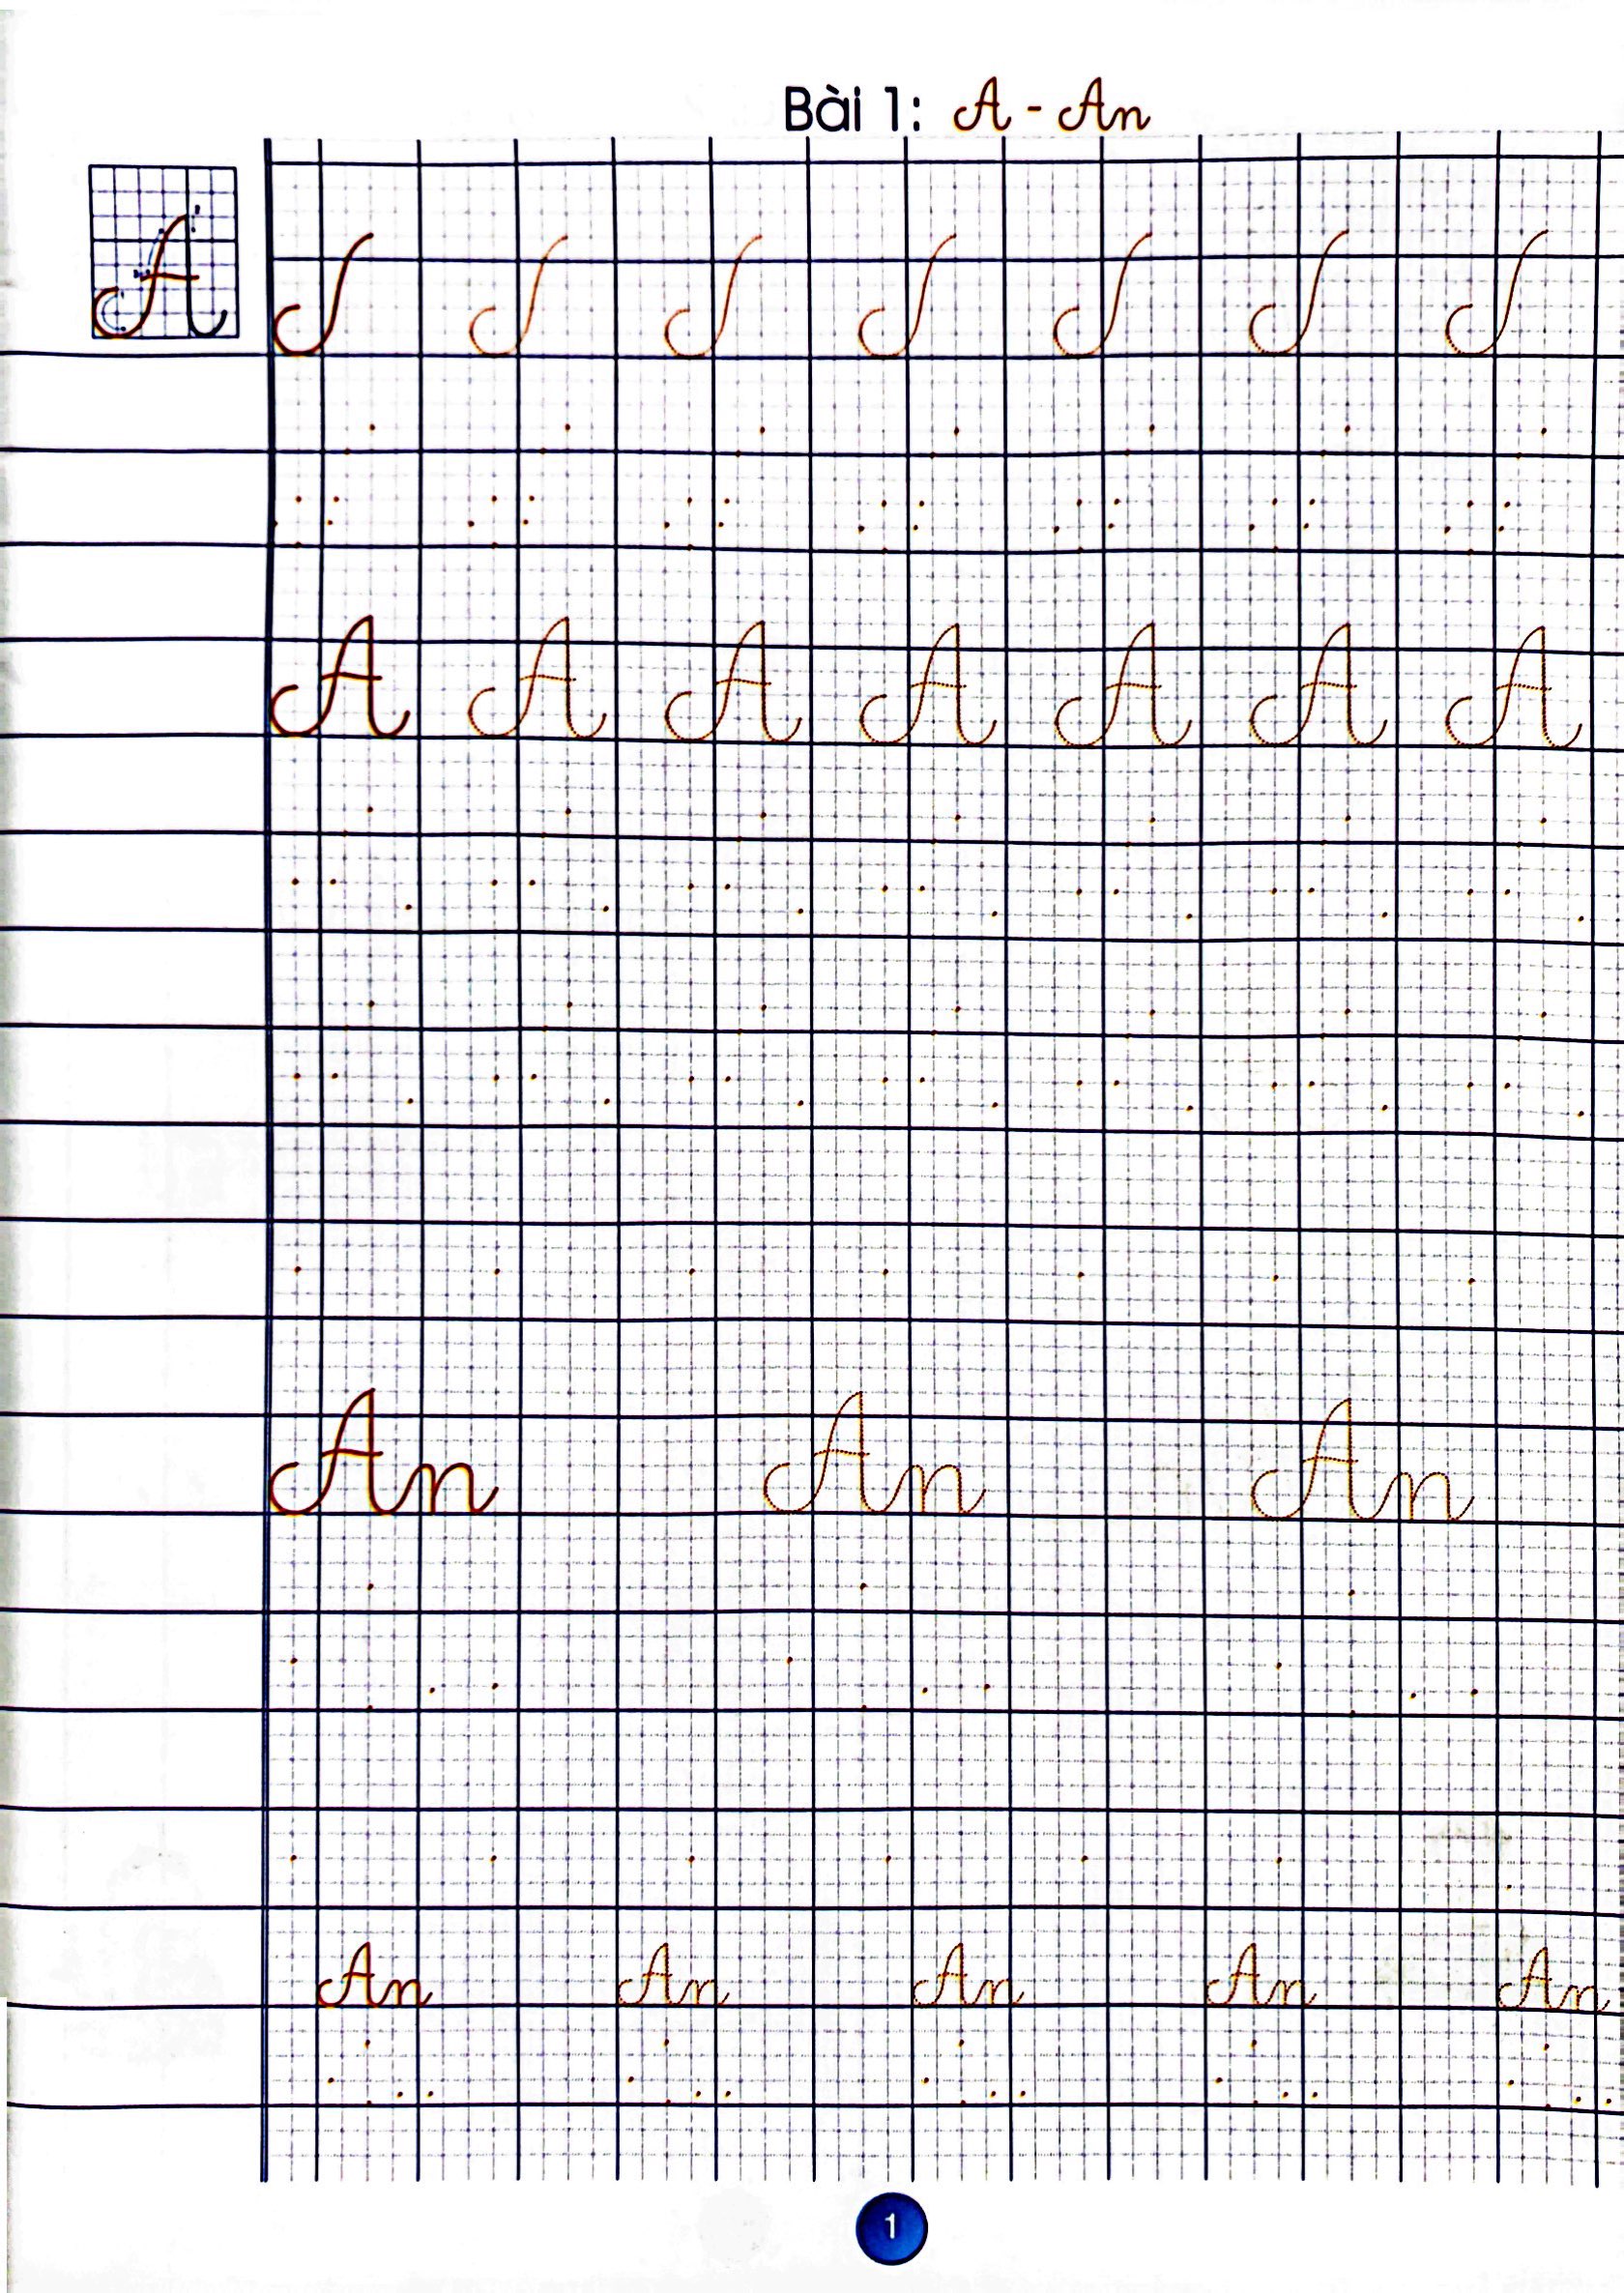 Bài 1: A - An
A
A A A A A A A
An An An
An An An An An
1